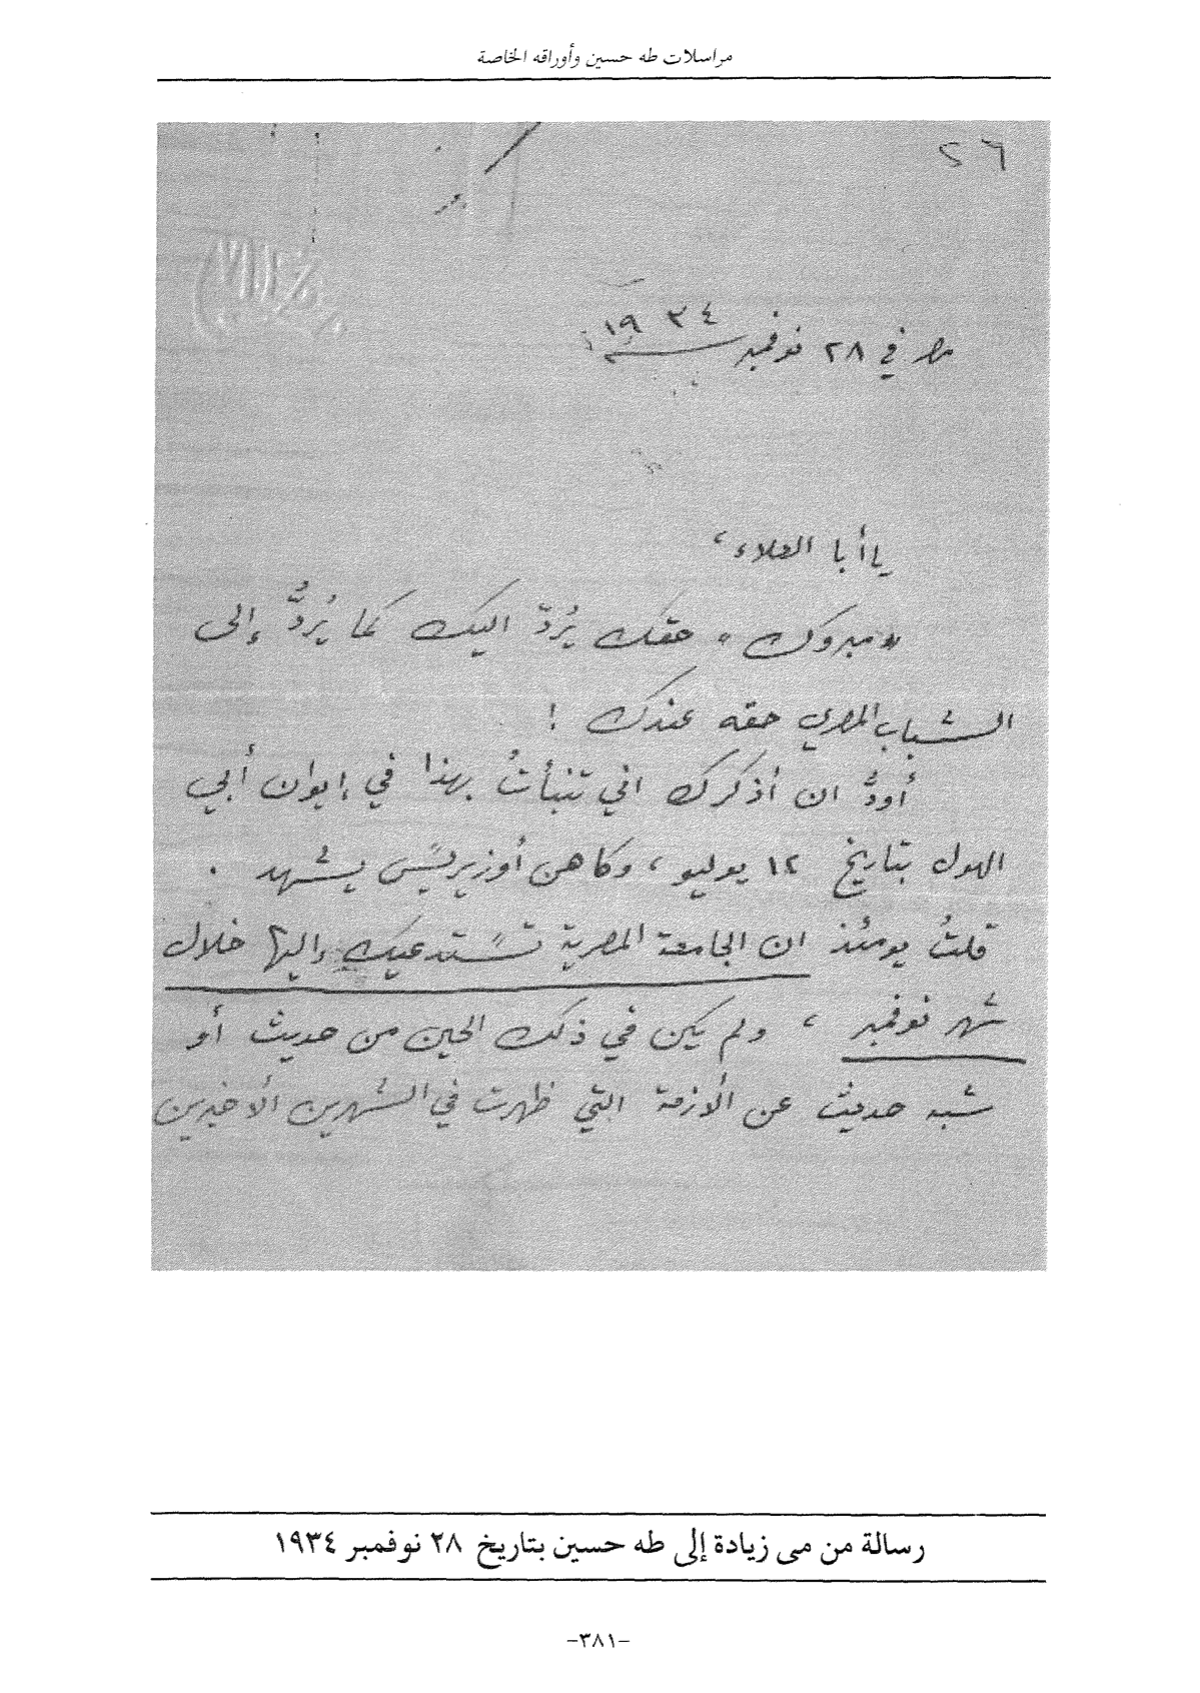 مراسلات طه حسين وأوراقه الخاصة
٢٦
مصر في ٢٨ نوفمبر سنة ١٩٣٤
يا أبا العلاء،
«مبروك» حقك يُردّ اليك كما يُردُّ إلى
الشباب المصري حقه عندك !
أودُّ ان أذكرك اني تنبأتُ بهذا في إيوان أبي
الهول بتاريخ ١٢ يوليو، وكاهن أوزيريس يشهد .
قلتُ يومئذ ان الجامعة المصرية تستدعيك إليها خلال
شهر نوفمبر، ولم يكن في ذلك الحين من حديث أو
شبه حديث عن الأزمة التي ظهرت في الشهرين الأخيرين
رسالة من مى زيادة إلى طه حسين بتاريخ ٢٨ نوفمبر ١٩٣٤
-٣٨١-